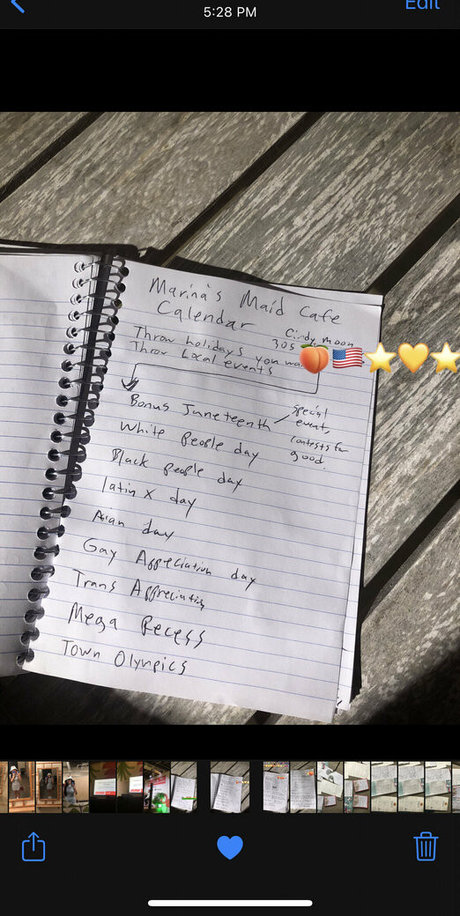 5:28 PM
Edit
Marina's Maid Cafe
Calendar
Cindy moon
305
Throw holidays you
Throw Local events
Bonus Juneteenth
special
event,
contests for
good.
White People day
Black people day
latin x day
Asian day
Gay Appreciation day
Trans Appreciation
Mega Recess
Town Olympics